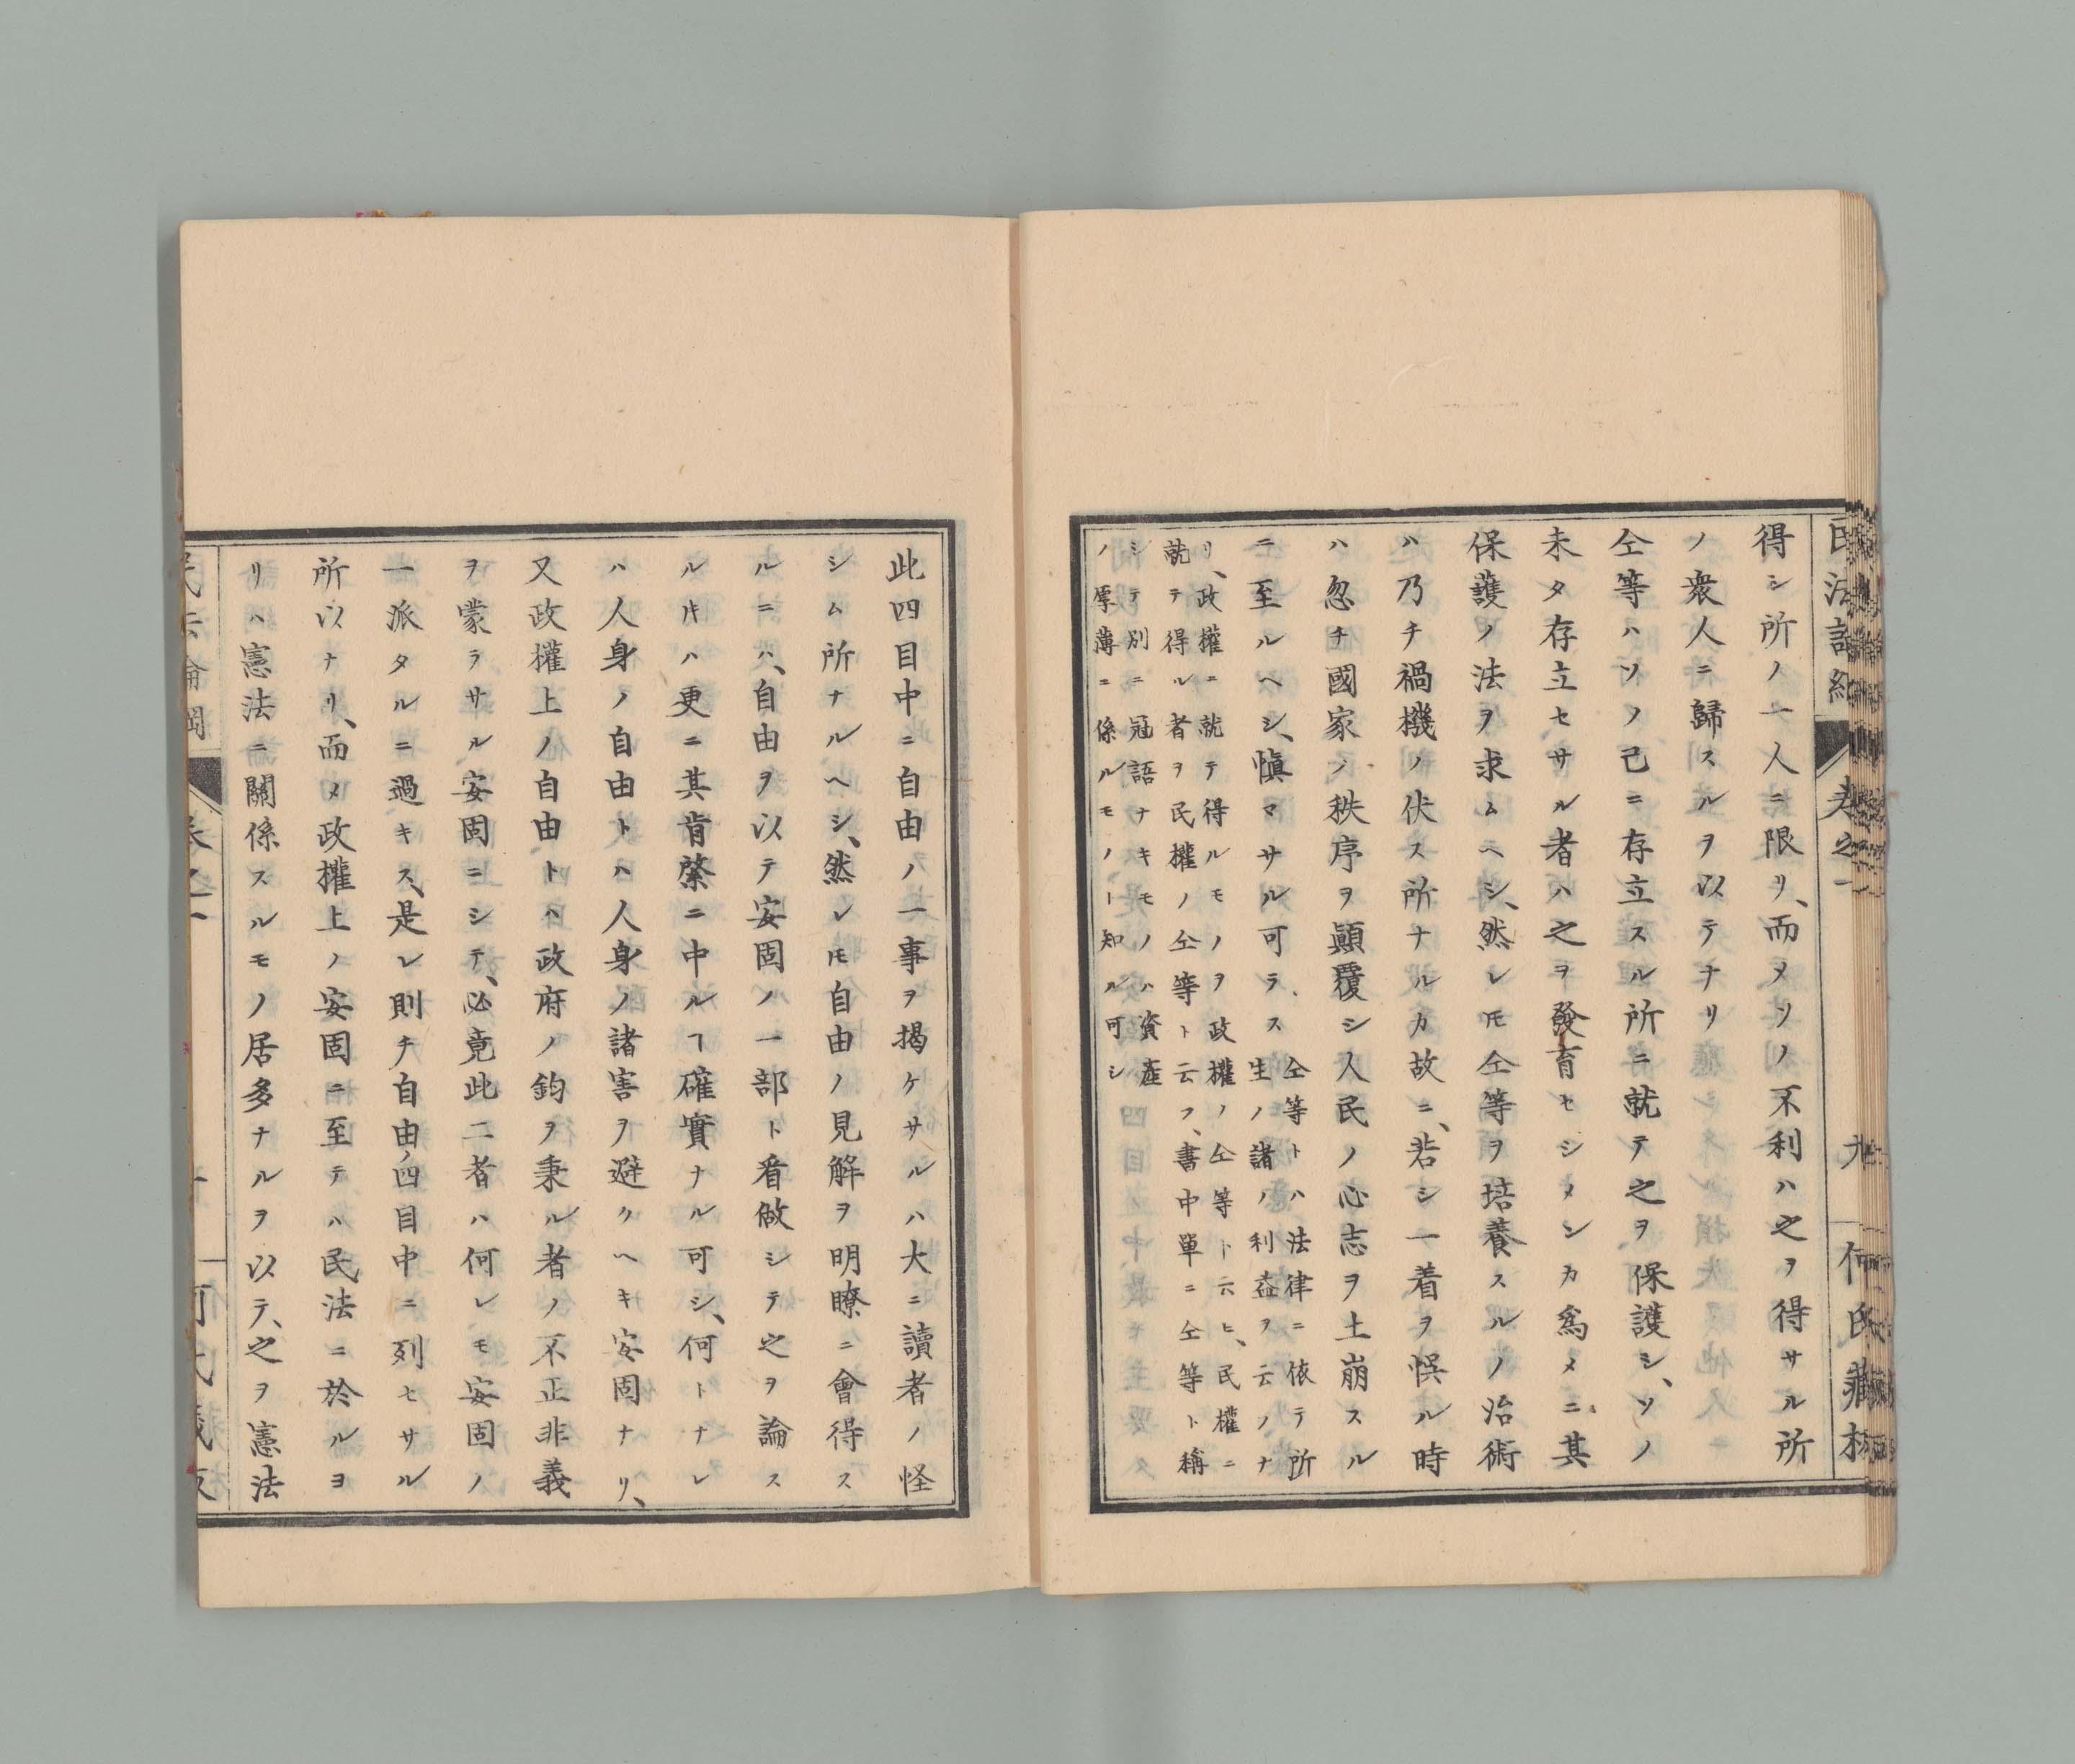 得シ所ノ一人ニ限リ、而メソノ不利ハ之ヲ得サル所
ノ衆人ニ歸スルヲ以テナリ
仝等ハソノ己ニ存立スル所ニ就テ之ヲ保護シ、ソノ
未タ存立セサル者ハ之ヲ發育セシメンカ爲メニ其
保護ノ法ヲ求ムヘシ、然レ𪜈仝等ヲ培養スルノ治術
ハ乃チ禍機ノ伏ス所ナルカ故ニ、若シ一着ヲ悞ル時
ハ忽チ國家ノ秩序ヲ顚覆シ人民ノ心志ヲ土崩スル
ニ至ルヘシ、愼マサル可ラス
仝等トハ法律ニ依テ所
生ノ諸ノ利益ヲ云ノナ
リ、政權ニ就テ得ルモノヲ政權ノ仝等ト云ヒ、民權ニ
就テ得ル者ヲ民權ノ仝等ト云フ、書中單ニ仝等ト稱
シテ別ニ冠語ナキモノハ資產
ノ厚薄ニ係ルモノト知ル可シ
民法論綱
卷之一
九
何氏藏板
此四目中ニ自由ノ一事ヲ揭ケサルハ大ニ讀者ノ怪
シム所ナルヘシ、然レ𪜈自由ノ見解ヲ明瞭ニ會得ス
ルニハ、自由ヲ以テ安固ノ一部ト看做シテ之ヲ論ス
ルキハ更ニ其肯綮ニ中ルヿ確實ナル可シ、何トナレ
ハ人身ノ自由トハ人身ノ諸害ヲ避クヘキ安固ナリ、
又政權上ノ自由トハ政府ノ鈞ヲ秉ル者ノ不正非義
ヲ蒙ラサル安固ニシテ、必竟此二者ハ何レモ安固ノ
一派タルニ過キス、是レ則チ自由ノ四目中ニ列セサル
所以ナリ、而メ政權上ノ安固ニ至テハ民法ニ於ルヨ
リハ憲法ニ關係スルモノ居多ナルヲ以テ、之ヲ憲法
民法論綱
卷之一
十
何氏藏板